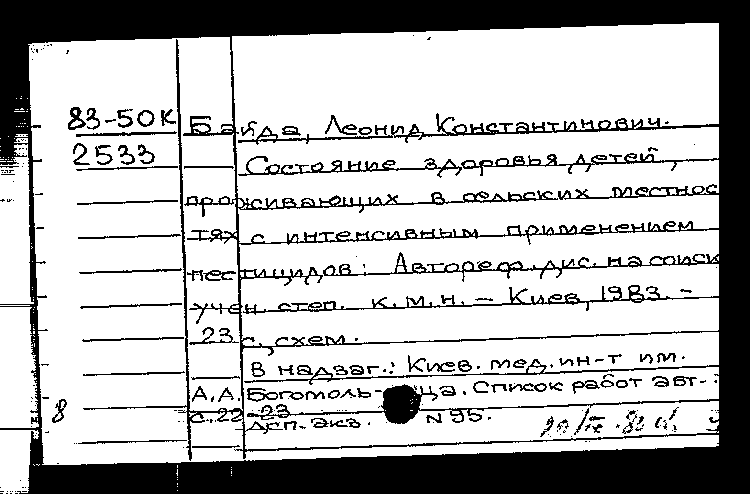 83-50К Байда, Леонид Константинович.
2533 Состояние здоровья детей,
проживающих в сельских местнос
тях с интенсивным применением
пестицидов: Автореф. дис. на соиск
учен. степ. к.м.н. – Киев, 1983. –
23 с., схем.
В надзаг.: Киев. мед. ин-т им.
А.А. Богомоль-ца. Список работ авт.:
8 с. 22-23
Деп. экз. N 95.